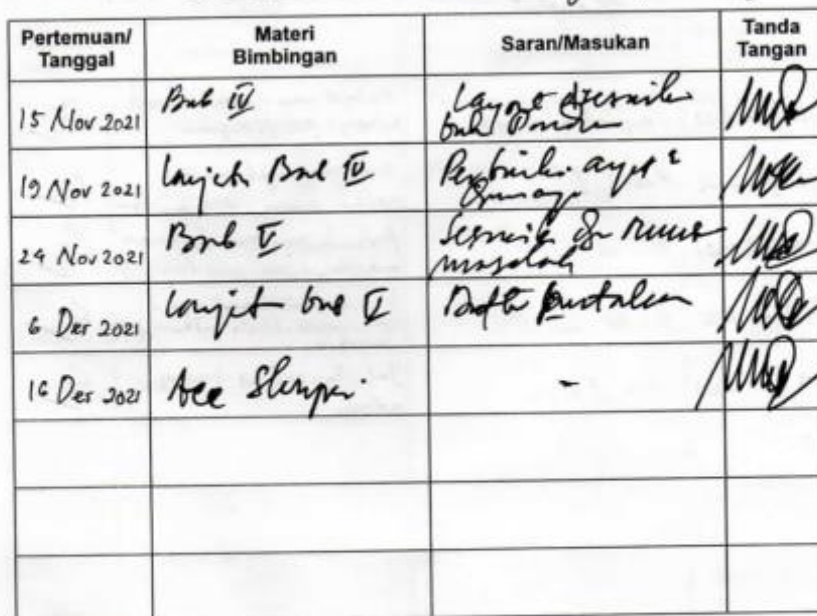 Pertemuan/ Tanggal
Materi Bimbingan
Saran/Masukan
Tanda Tangan
15 Nov 2021
Bab IV
Layout disesuaikan
buku
19 Nov 2021
Lanjut Bab IV
Perbaiki
24 Nov 2021
Bab V
Sesuaikan dgn rumus
masalah
6 Des 2021
Lanjut bab V
Daftar pustaka
16 Des 2021
Acc Skripsi
-